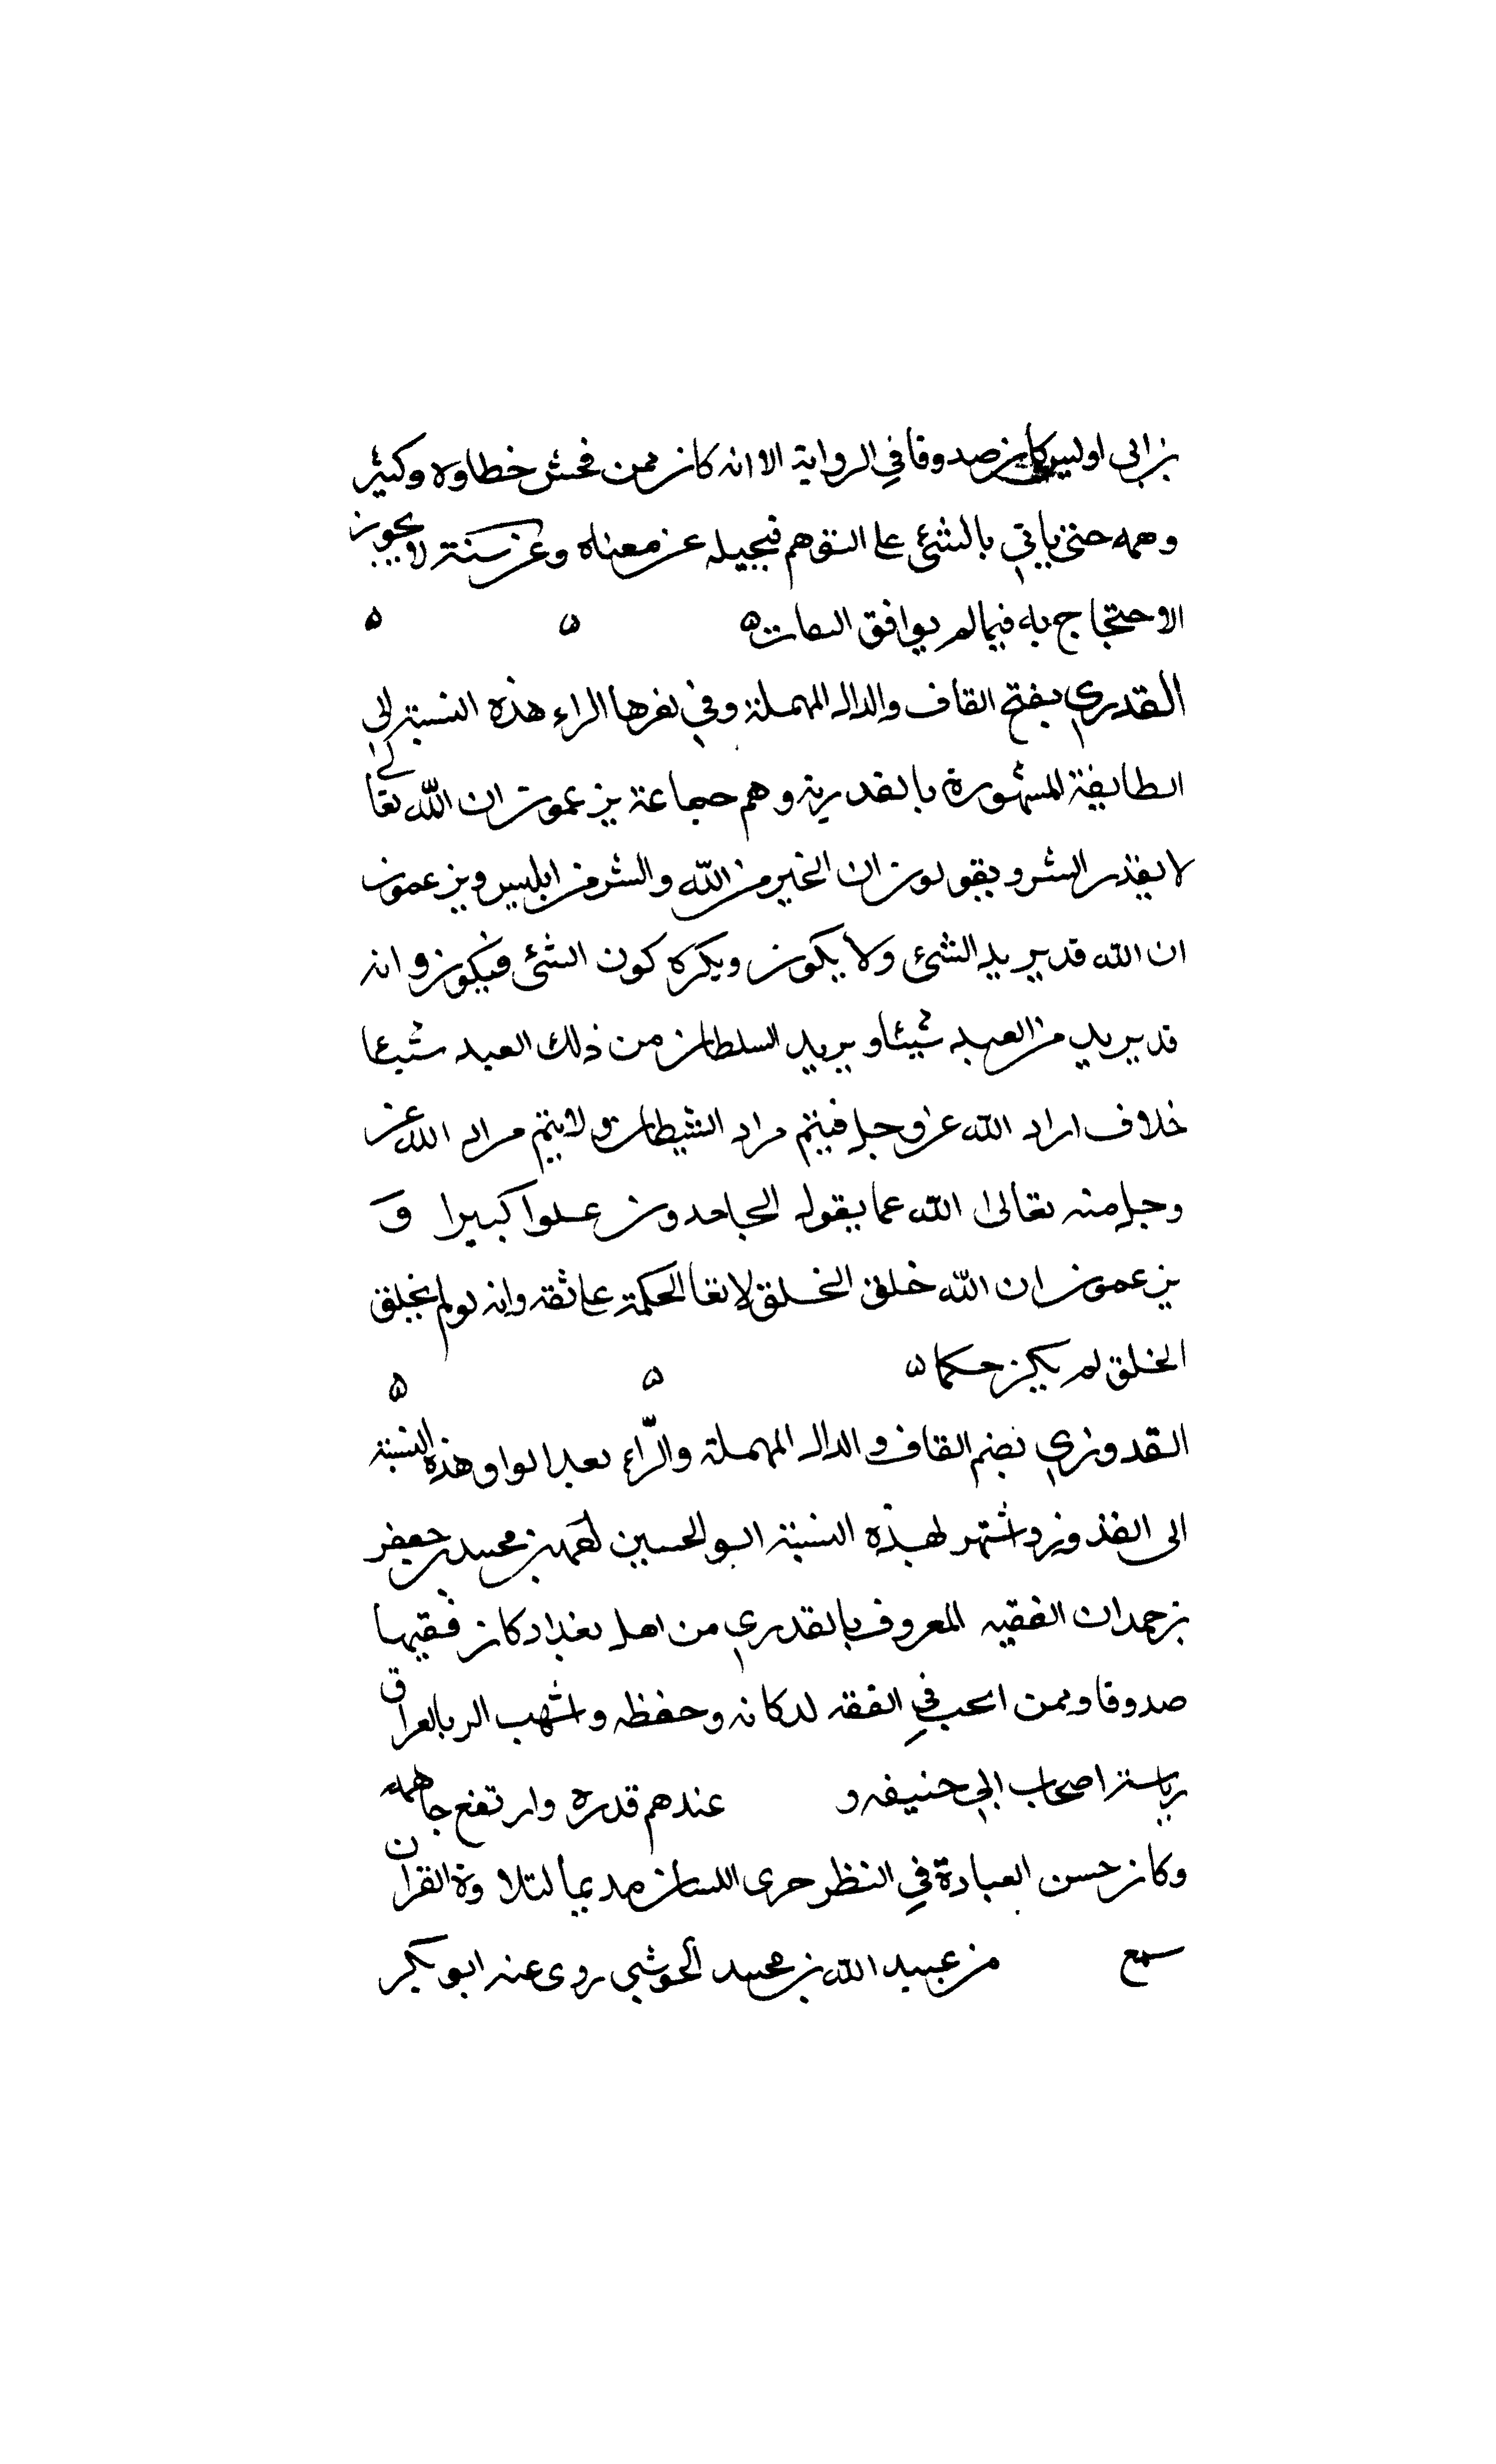 بن ابى اويس كان صدوقا في الرواية الا انه كان ممن فحش خطاوه وكثر
وهمه حتى ياتي بالشئ على التوهم فيحيله عن معناه وعن سننه لا يجوز
الاحتجاج به فيما لم يوافق الثقات ٥ ٥ ٥
القدري بفتح القاف والدال المهملة وفي اخرها الراء هذه النسبة الى
الطايفة المشهورة بالقدرية وهم جماعة يزعمون ان الله تعالى
لا يقدر الشر ويقولون ان الخير من الله والشر من ابليس ويزعمون
ان الله قد يريد الشئ ولا يكون ويكره كون الشئ فيكون وانه
قد يريد من العبد شيئا ويريد السلطان من ذلك العبد شيئا
خلاف اراد الله عز وجل فيتم مراد الشيطان ولا يتم مراد الله عز
وجل منه تعالى الله عما يقوله الجاحدون علوا كبيرا و
يزعمون ان الله خلق الخلق وانه لو لم يخلق
الخلق لم يكن حكما ٥ ٥ ٥
القدوري بضم القاف والدال المهملة والراء بعد الواو هذه النسبة
الى القدور واشتهر بهذه النسبة ابو الحسين احمد بن محمد بن جعفر
بن حمدان الفقيه المعروف بالقدري من اهل بغداد كان فقيها
صدوقا وممن انجب في الفقه لدكانه وحفظه بالعراق
رياسة اصحاب ابي حنيفه و عندهم قدره وارتفع جاهه
وكان حسن العبادة في النظر جرى اللسان مديما لتلاوة القران
سمع من عبيد الله بن محمد الحوشبي روى عنه ابو بكر